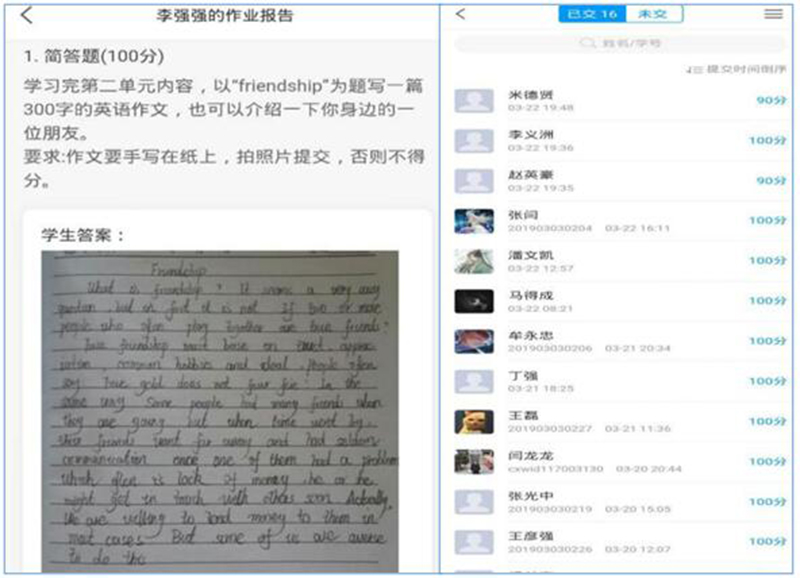 李强强的作业报告
1. 简答题(100分)
学习完第二单元内容，以“friendship”为题写一篇
300字的英语作文，也可以介绍一下你身边的一
位朋友。
要求:作文要手写在纸上，拍照片提交，否则不得
分。
学生答案：
Friendship
What is friendship? It seems a very easy
question, but in fact it is not. If two or more
people who often play together are true friends?
True friendship must base on trust, apprec
iation, common hobbies and ideal. People often
say, True gold does not fear fire. In the
same way Some people had many friends when
they are young but when time went by,
their friends went far away and had seldom
communication once one of them had a problem
which often is lack of money, he or he
might get in touch with others soon. Actually,
We are willing to lend money to them in
most cases. But some of us are averse
to do tha
已交 16 未交
姓名/学号
提交时间倒序
米德贤
03-22 19:48
90分
李义洲
03-22 19:36
100分
赵英豪
03-22 19:35
90分
张闯
201903030204 03-22 16:11
100分
潘文凯
03-22 12:57
100分
马得成
03-22 08:21
100分
牟永忠
201903030206 03-21 20:34
100分
丁强
03-21 18:25
100分
王磊
201903030227 03-21 11:36
100分
闫龙龙
cxwid117003130 03-20 20:44
100分
张光中
201903030219 03-20 15:05
100分
王彦强
201903030226 03-20 12:07
100分